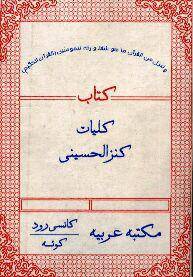 وننزل من القرآن ما هو شفاء ورحمة للمؤمنين (القرآن الحكيم)
کتاب
کلیات
کنزالحسینی
مکتبه عربیه
کانسی روڈ
کوئٹه